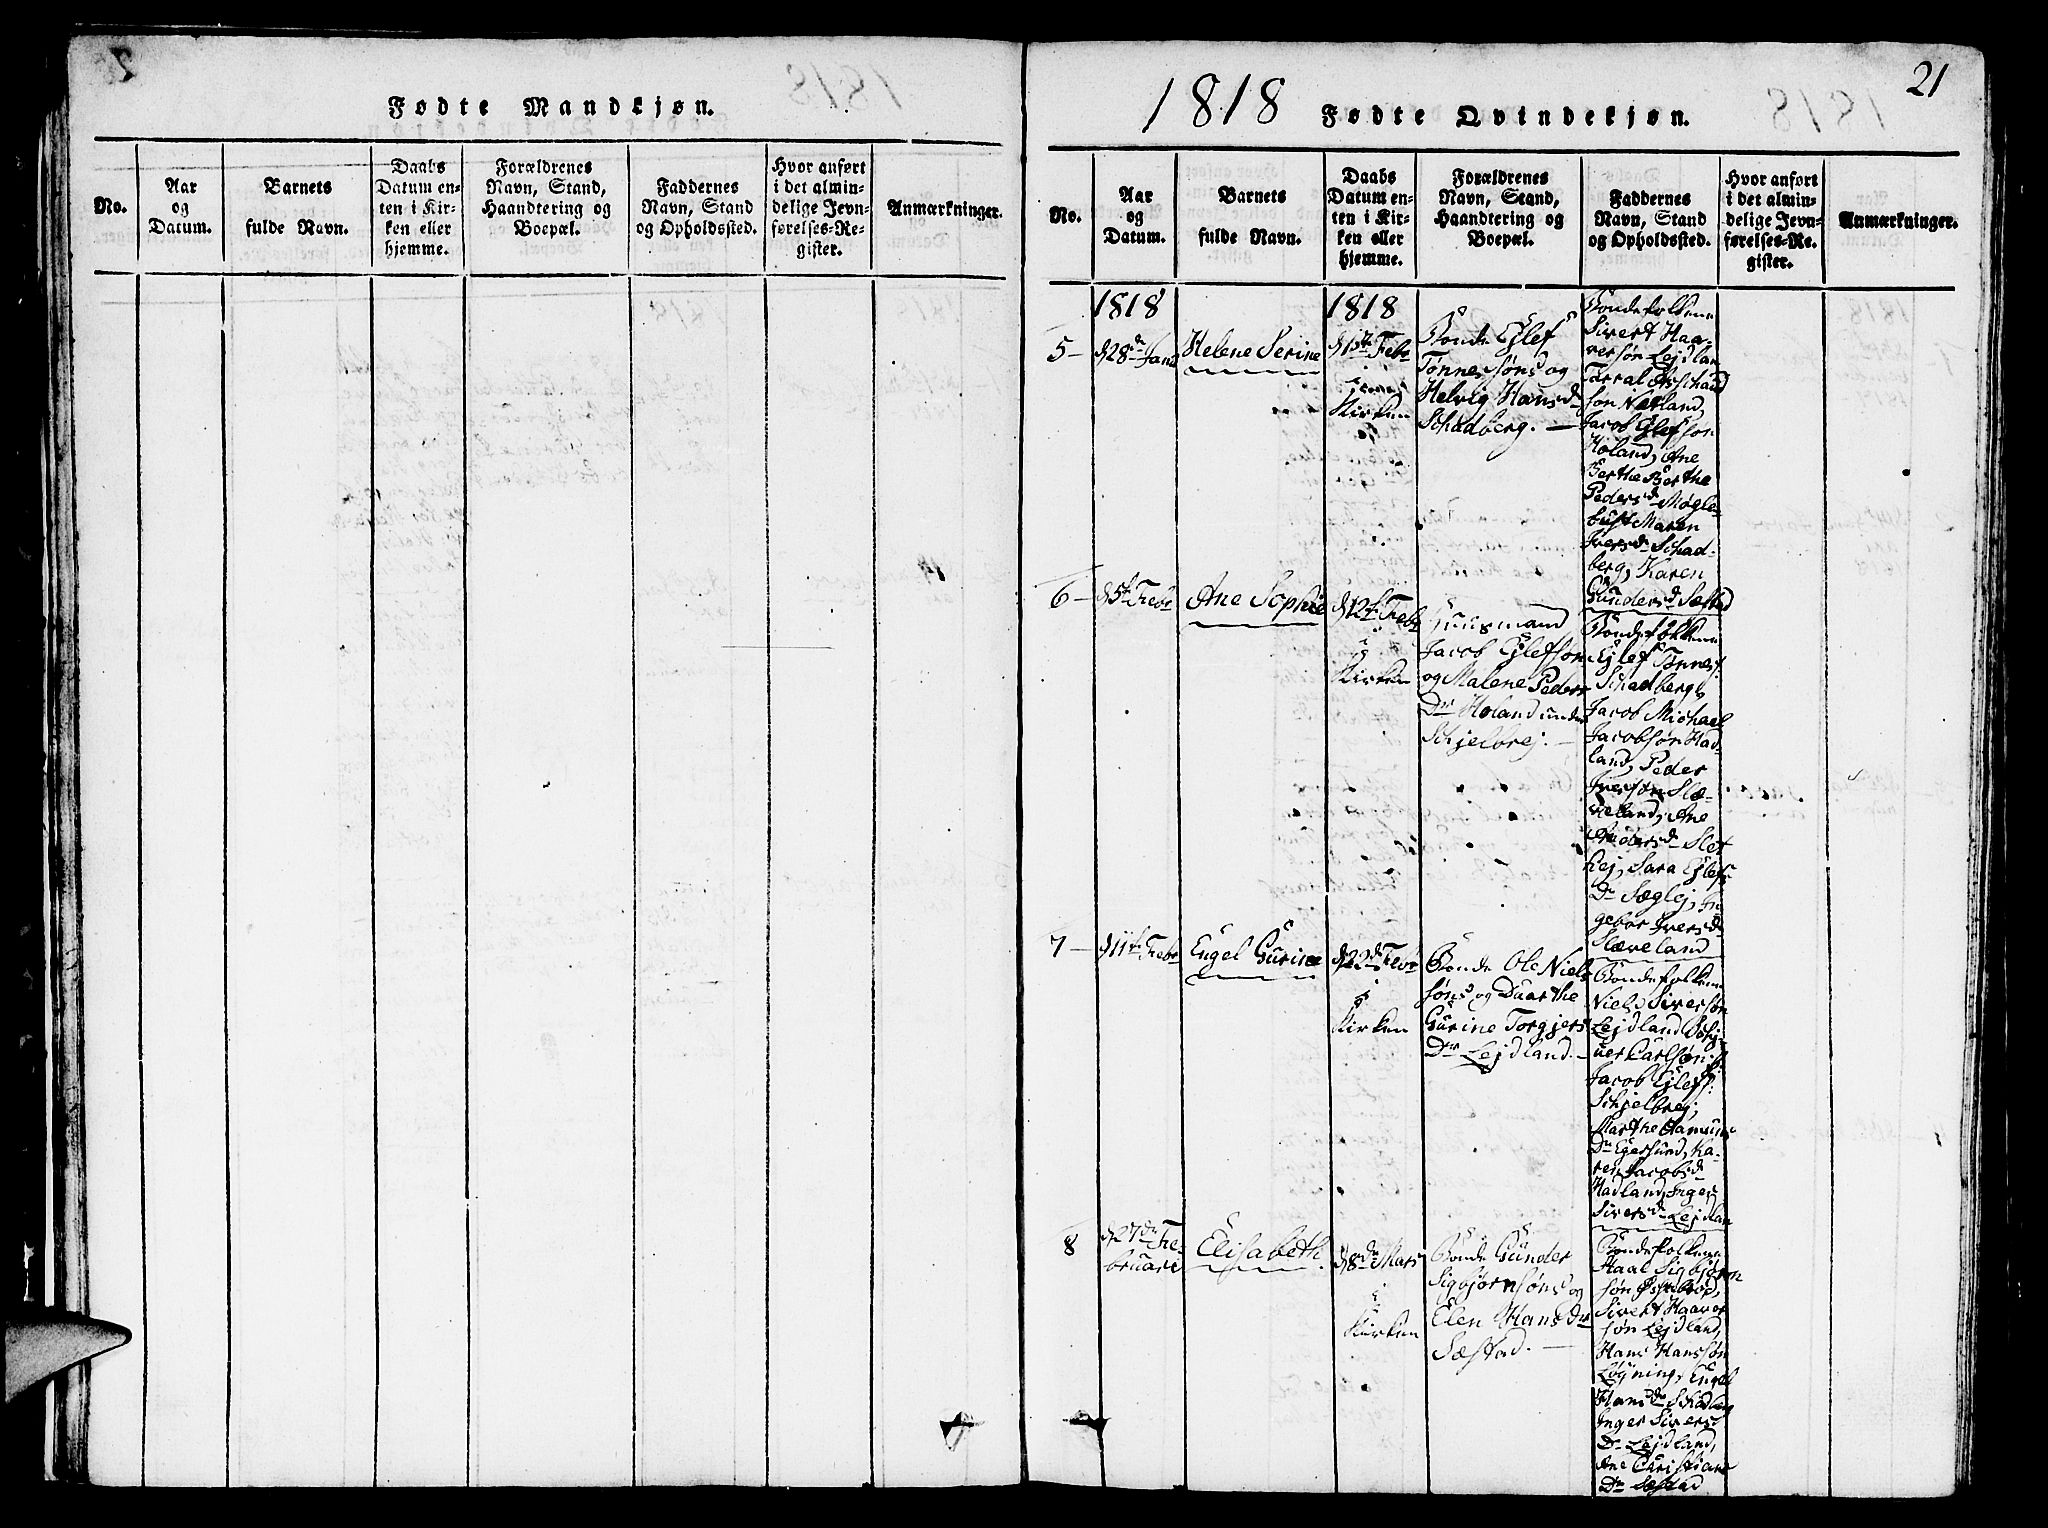 Fødte Mandkjøn.
No.
Aar
og
Datum.
Barnets
fulde Navn.
Daabs
Datum en-
ten i Kir-
ken eller
hjemme.
Forældrenes
Navn, Stand,
Haandtering og
Boepæl.
Faddernes
Navn, Stand
og Opholdssted.
Hvor anført
i det almin-
delige Jevn-
førelses-Re-
gister.
Anmærkninger.
21
1818 Fødte Qvindekjøn.
No.
Aar
og
Datum.
Barnets
fulde Navn.
Daabs
Datum en-
ten i Kir-
ken eller
hjemme.
Forældrenes
Navn, Stand,
Haandtering og
Boepæl.
Faddernes
Navn, Stand
og Opholdssted.
Hvor anført
i det almin-
delige Jevn-
førelses-Re-
gister.
Anmærkninger.
5 –
1818
d 28de Janu
Helene Serine
1818
i
Kirken
Bonde Ejlef
Tønnessøns og
Helvig Hansd
Schadberg. –
Bondefolkene
Sivert Haa-
versøn Lejdlan
Tarral
søn Netland,
Jacob Ejlefsøn
Holand, Ane
Berthe Berthe
Pedersd Møgle-
bust Maren
Iversd Schad-
berg, Karen
Gundersd Sæstad
6 –
d 5t Febr
Ane Sophie
d 12t Febr
i
Kirken
Huusmand
Jacob Ejlefsøn
og Malene Peders
Dr Holand under
Schjelbrej. –
Bondefolkene
Ejlef Tønnes:
Schadberg,
Jacob Michael
Jacobsøn Had-
land, Peder
Iversøn Slæ-
veland, Ane
Andersd Slet
, Sara Ejlefs
Dr Sæglej, In
gebor Iversd
Slæveland
7 –
d 11t Febr
Engel Gurine
d 22d Febr
i
Kirken
Bonde Ole Niels
søns og Duarthe
Gurine Torgjers
Dr Lejdland. –
Bondefolkene
Niels Siversøn
Lejdland
Carlsøn
Jacob Ejlefs:
Schjelbrej,
Marthe
Dr Egersund, Ka-
ren Jacobsd
Hadland, Inger
Siversd Lejdlan
8
d 27de Fe-
bruari
Elisabeth
d 8de Mars
i
Kirken
Bonde Gunder
Sigbjørnsøns og
Elen Hans Dr
Sæstad. –
Bondefolkene
Haal Sigbjørn
søn
Sivert Haaver
søn Lejdland,
Hans Hanssøn
Løyning, Engel
Hansd Schadberg
Inger Sivers
Dr Lejdland,
Ane Christians
Dr Sæstad